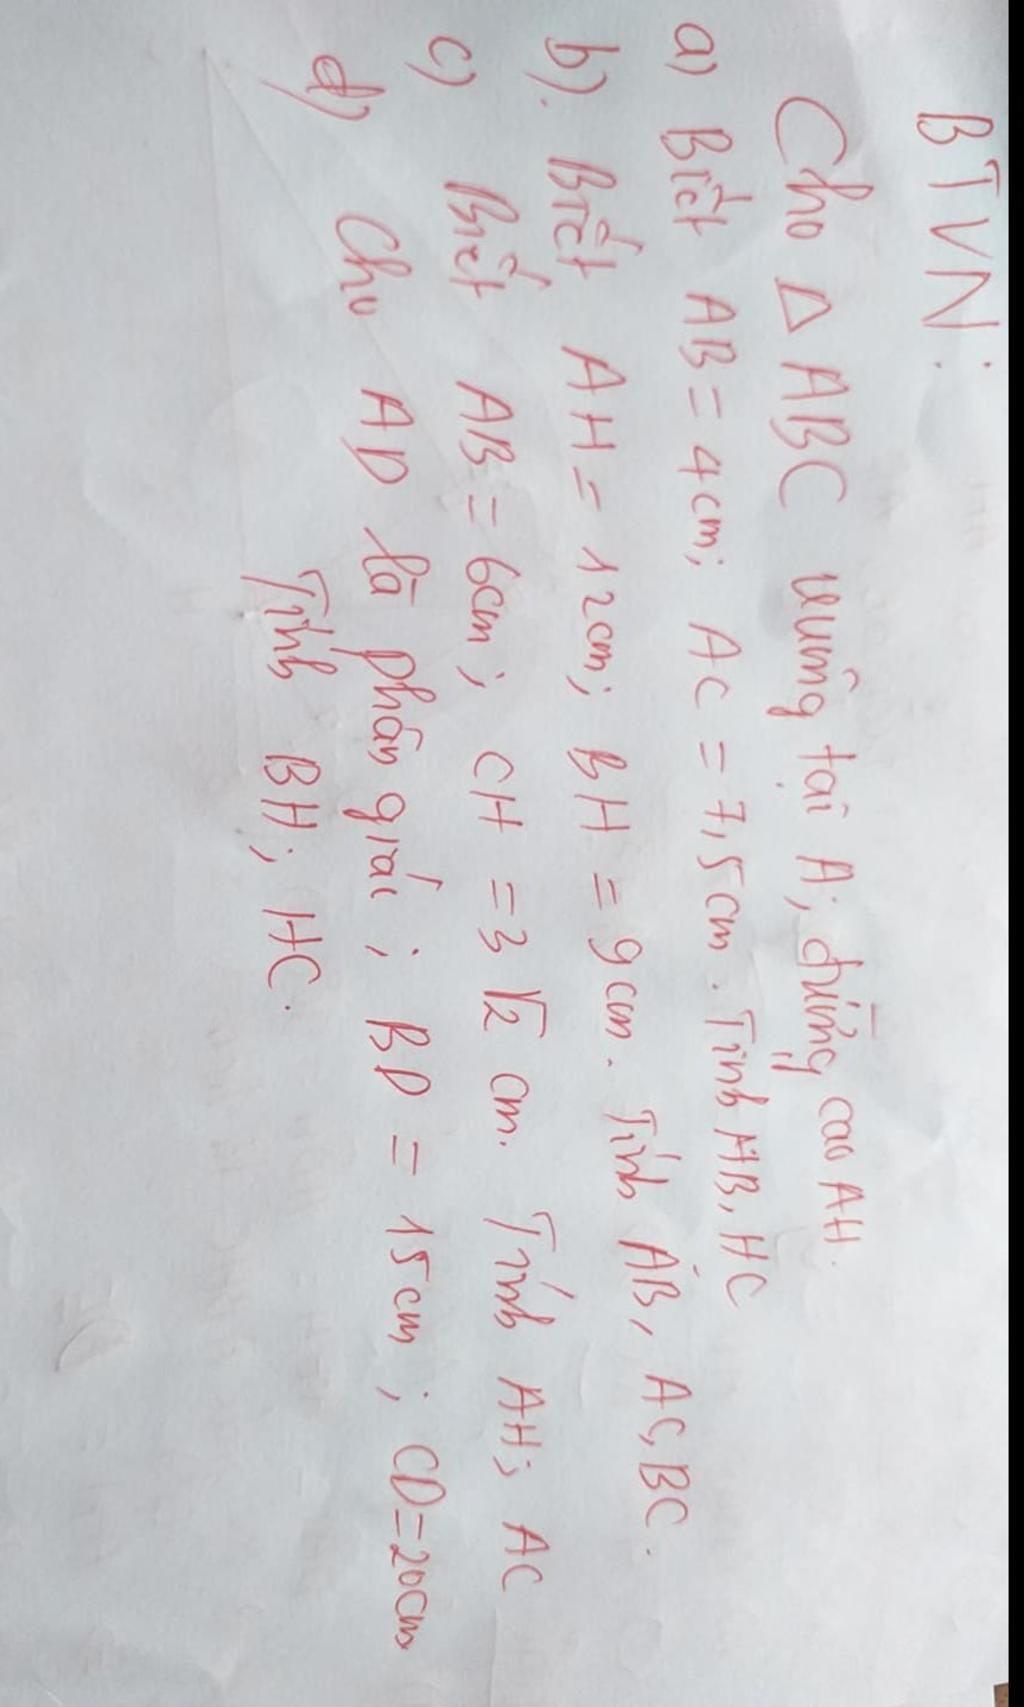 BTVN:
Cho Δ ABC vuông tại A; đường cao AH.
a) Biết AB = 4cm; AC = 7,5cm. Tính HB, HC
b). Biết AH = 12cm; BH = 9cm. Tính AB, AC, BC.
c) Biết AB = 6cm; CH = 3√2 cm. Tính AH; AC
d) Cho AD là phân giác; BD = 15cm; CD=20cm
Tính BH; HC.